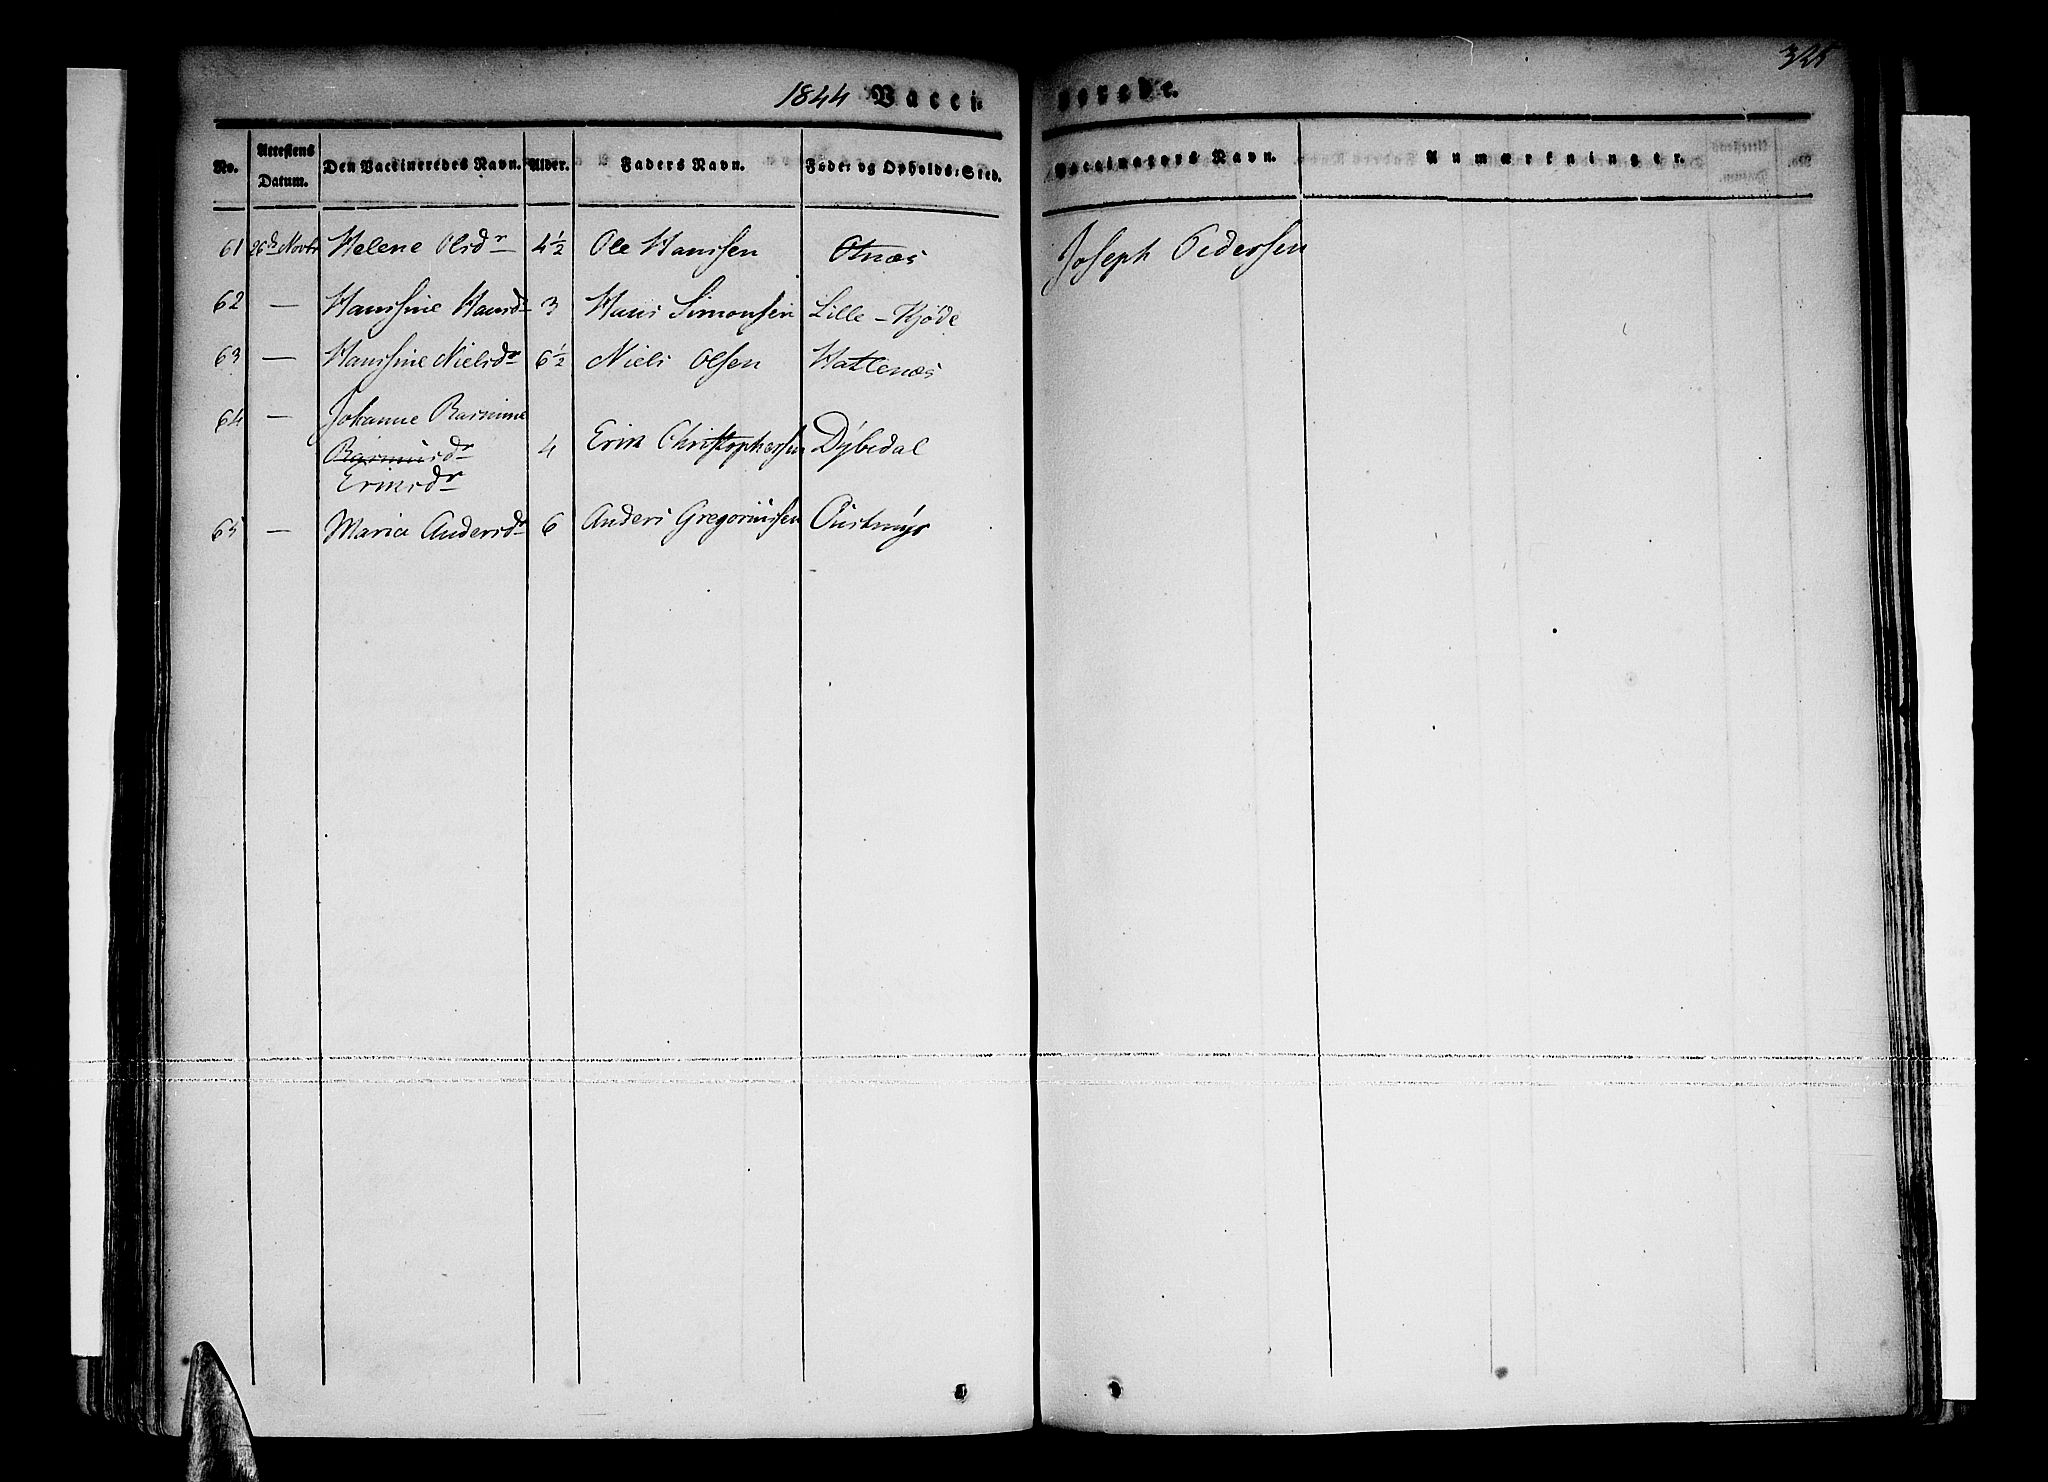 1844 Vacci- nerede. 325
No. Attestens Datum. Den Vaccineredes Navn. Alder. Faders Navn. Føde- og Opholds-Sted. Vaccinators Navn. Anmærkninger.
61 26d Novbr Helene Olsdr 4½ Ole Hanssen Otnæs Joseph Pedersen
62 — Hanssine Hansdr 3 Hans Simonsen Lille-Kjøde
63 — Hanssine Nielsdr 6½ Niels Olsen Hatlenæs
64 — Johanne Rasmine
Rasmusdr 4 Erik Christophersen Dybedal
Eriksdr
65 — Maria Andersdr 6 Anders Gregoriussen Oustmyr